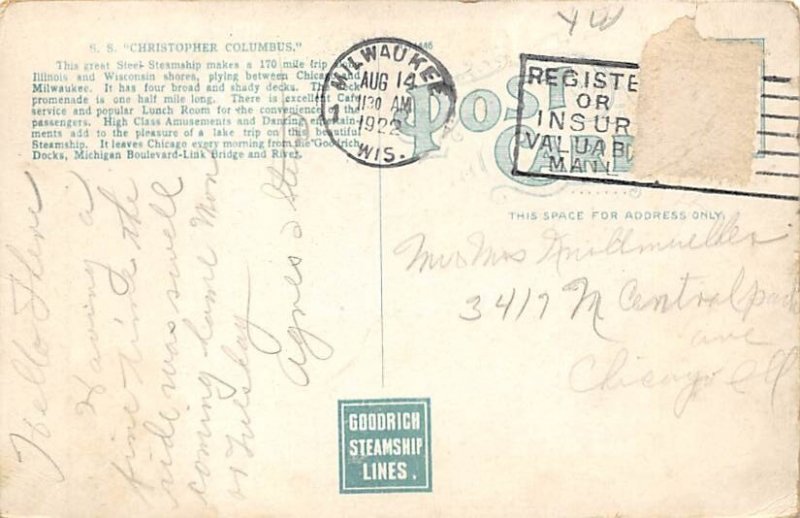 S. S. "CHRISTOPHER COLUMBUS."
This great Steel Steamship makes a 170 mile trip
Illinois and Wisconsin shores, plying between Chicago and
Milwaukee. It has four broad and shady decks. The deck
promenade is one half mile long. There is excellent Cafe
service and popular Lunch Room for the convenience of the
passengers. High Class Amusements and Dancing entertain-
ments add to the pleasure of a lake trip on this beautiful
Steamship. It leaves Chicago every morning from the Goodrich
Docks, Michigan Boulevard-Link Bridge and River.
MILWAUKEE
AUG 14
1130 AM
1922
WIS.
POST
CA
REGISTE
OR
INSUR
VALUAB
MAIL
THIS SPACE FOR ADDRESS ONLY.
Hello There
Having a
fine time the
ride was swell
coming home Mon
or Tuesday
Agnes &
3417 N Central park
ave
Chicago Ill
GOODRICH
STEAMSHIP
LINES.